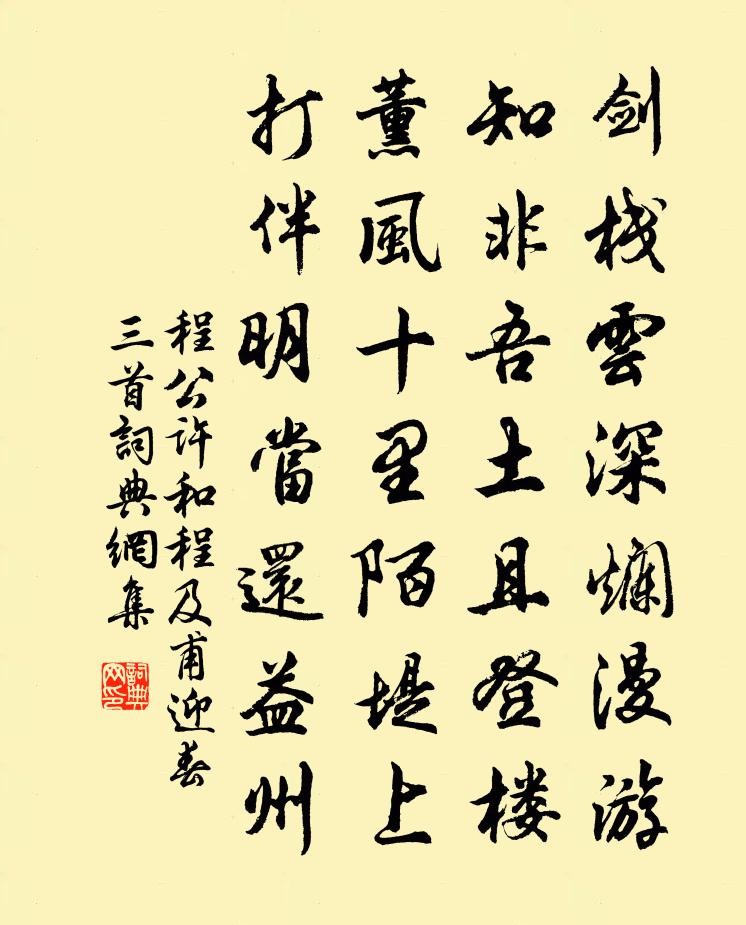 剑栈雲深爛漫游
知非吾土且登楼
薰風十里陌堤上
打伴明當還益州
程公许和程及甫迎春
三首詞典網集
詞典
网印